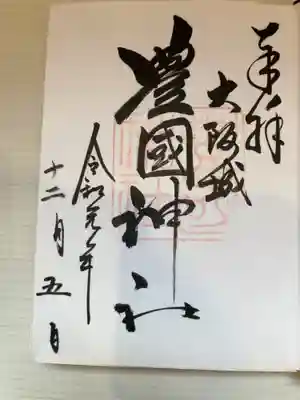 奉拝
大阪城
豊國神社
令和元年
十二月五日